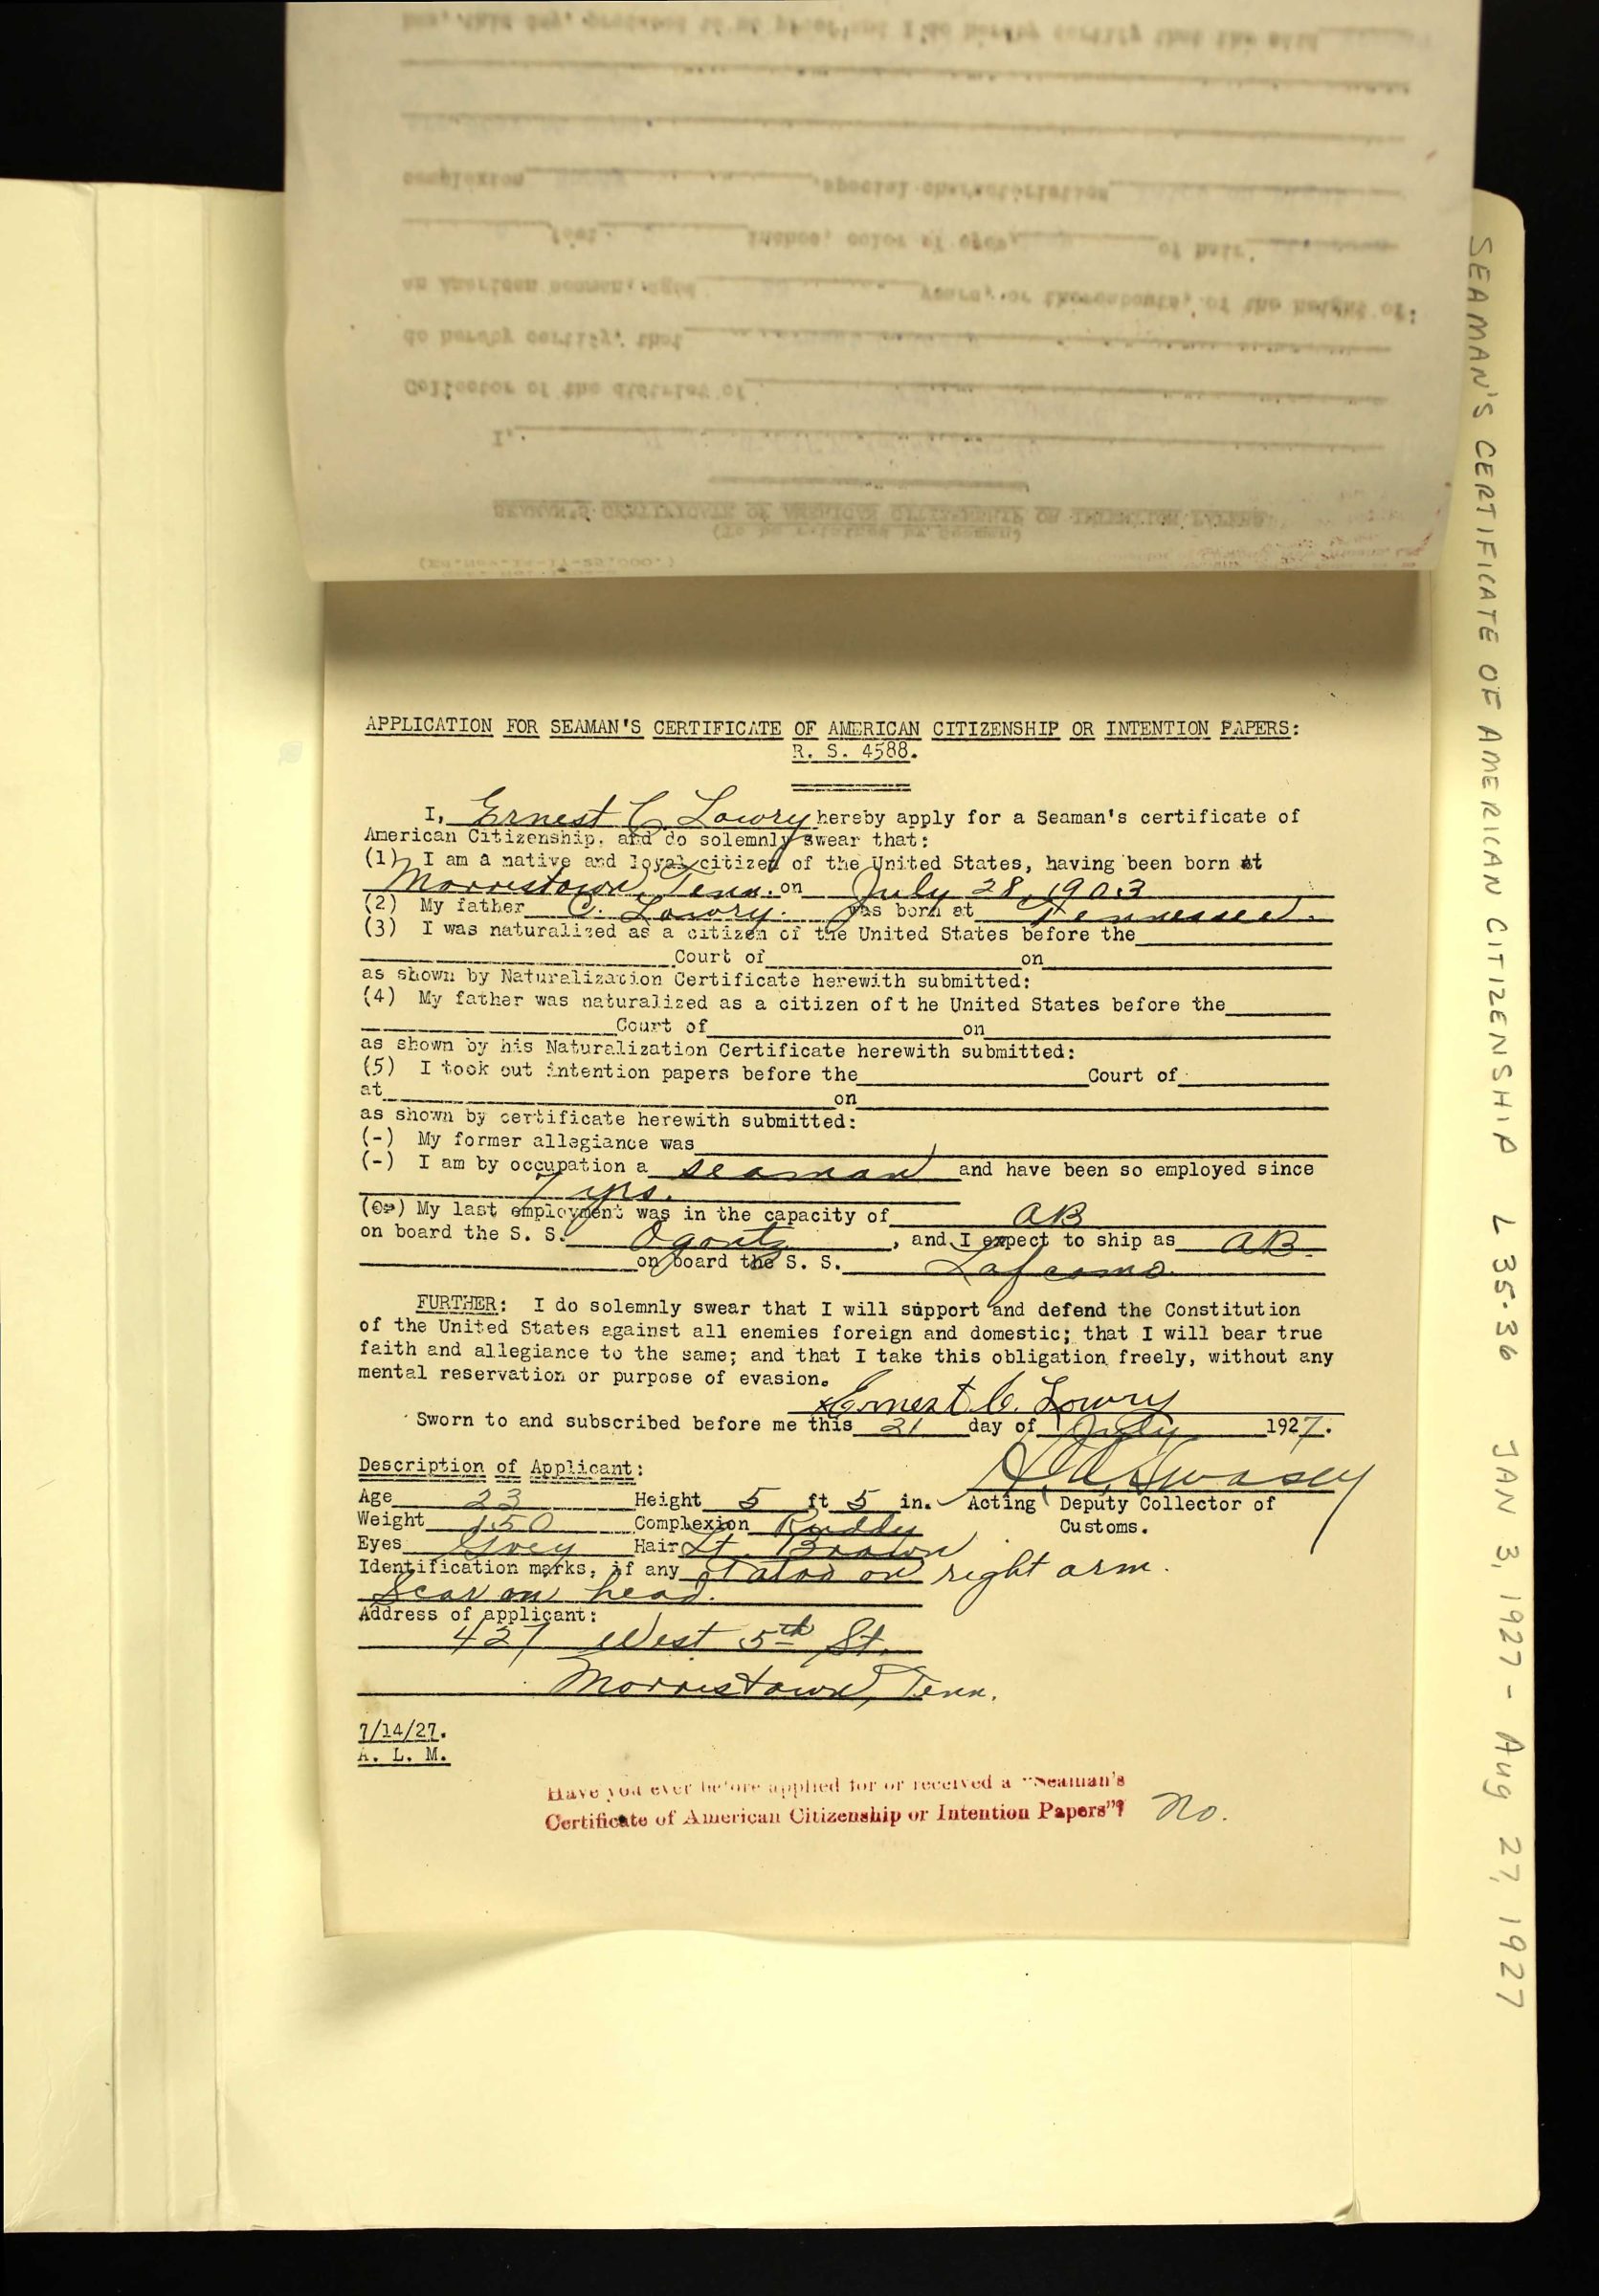 has, this day, produced to me proof and I do hereby certify that the said
complexion special characteristics
feet. inches, color of eyes, of hair.
an American seaman, aged years, or thereabouts, of the height of:
do hereby certify, that
Collector of the district of
I,
SEAMAN'S CERTIFICATE OF AMERICAN CITIZENSHIP OR INTENTION PAPERS
(To be retained by Seaman)
SEAMAN'S CERTIFICATE OF AMERICAN CITIZENSHIP L 35-36 JAN 3, 1927 - Aug 27, 1927
APPLICATION FOR SEAMAN'S CERTIFICATE OF AMERICAN CITIZENSHIP OR INTENTION PAPERS:
R. S. 4588.
I, Ernest C. Lowry hereby apply for a Seaman's certificate of
American Citizenship, and do solemnly swear that:
(1) I am a native and loyal citizen of the United States, having been born at
Morristown, Tenn. on July 28, 1903
(2) My father C. Lowry. was born at Tennessee.
(3) I was naturalized as a citizen of the United States before the
Court of on
as shown by Naturalization Certificate herewith submitted:
(4) My father was naturalized as a citizen oft he United States before the
Court of on
as shown by his Naturalization Certificate herewith submitted:
(5) I took out intention papers before the Court of
at on
as shown by certificate herewith submitted:
(-) My former allegiance was
(-) I am by occupation a seaman and have been so employed since
7 yrs.
My last employment was in the capacity of AB
on board the S. S. Ogontz, and I expect to ship as AB.
on board the S. S. Lafcomo.
FURTHER: I do solemnly swear that I will support and defend the Constitution
of the United States against all enemies foreign and domestic; that I will bear true
faith and allegiance to the same; and that I take this obligation freely, without any
mental reservation or purpose of evasion.
Ernest C. Lowry
Sworn to and subscribed before me this 21 day of July 1927.
Swasey
Description of Applicant:
Age 23 Height 5 ft 5 in. Acting Deputy Collector of
Weight 150 Complexion Ruddy Customs.
Eyes Grey Hair Lt. Brown
Identification marks, if any on right arm.
Scar on head.
Address of applicant:
427 West 5th St.
Morristown, Tenn.
7/14/27.
A. L. M.
Have you ever before applied for or received a "Seaman's
Certificate of American Citizenship or Intention Papers"? No.